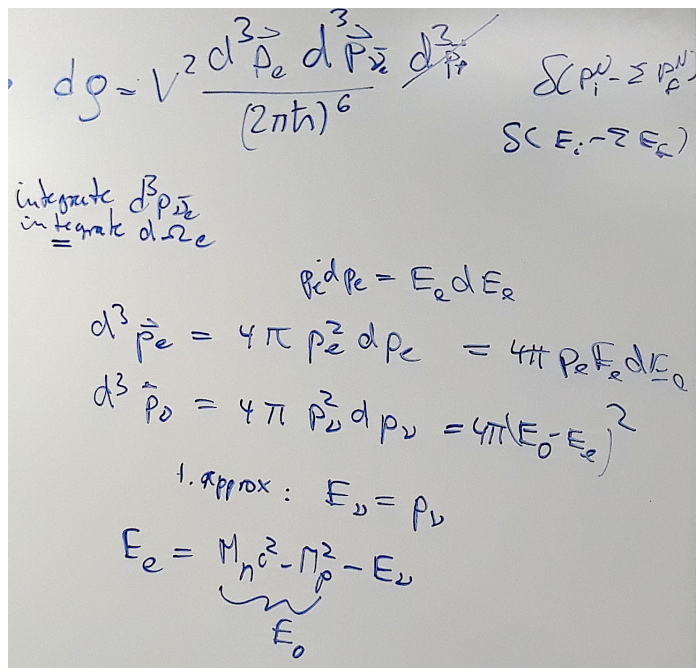 dρ = V² d³p⃗_e d³p⃗_ν̄e d³p⃗_p / (2πħ)⁶ δ(p_i^N - Σ p_f^N)
δ(E_i - Σ E_f)
integrate d³p_ν̄e
integrate dΩ_e
p_e dp_e = E_e dE_e
d³p⃗_e = 4π p_e² dp_e = 4π p_e E_e dE_e
d³p⃗_ν = 4π p_ν² dp_ν = 4π(E_0 - E_e)²
1. approx : E_ν = p_ν
E_e = M_n c² - M_p² - E_ν
E_0